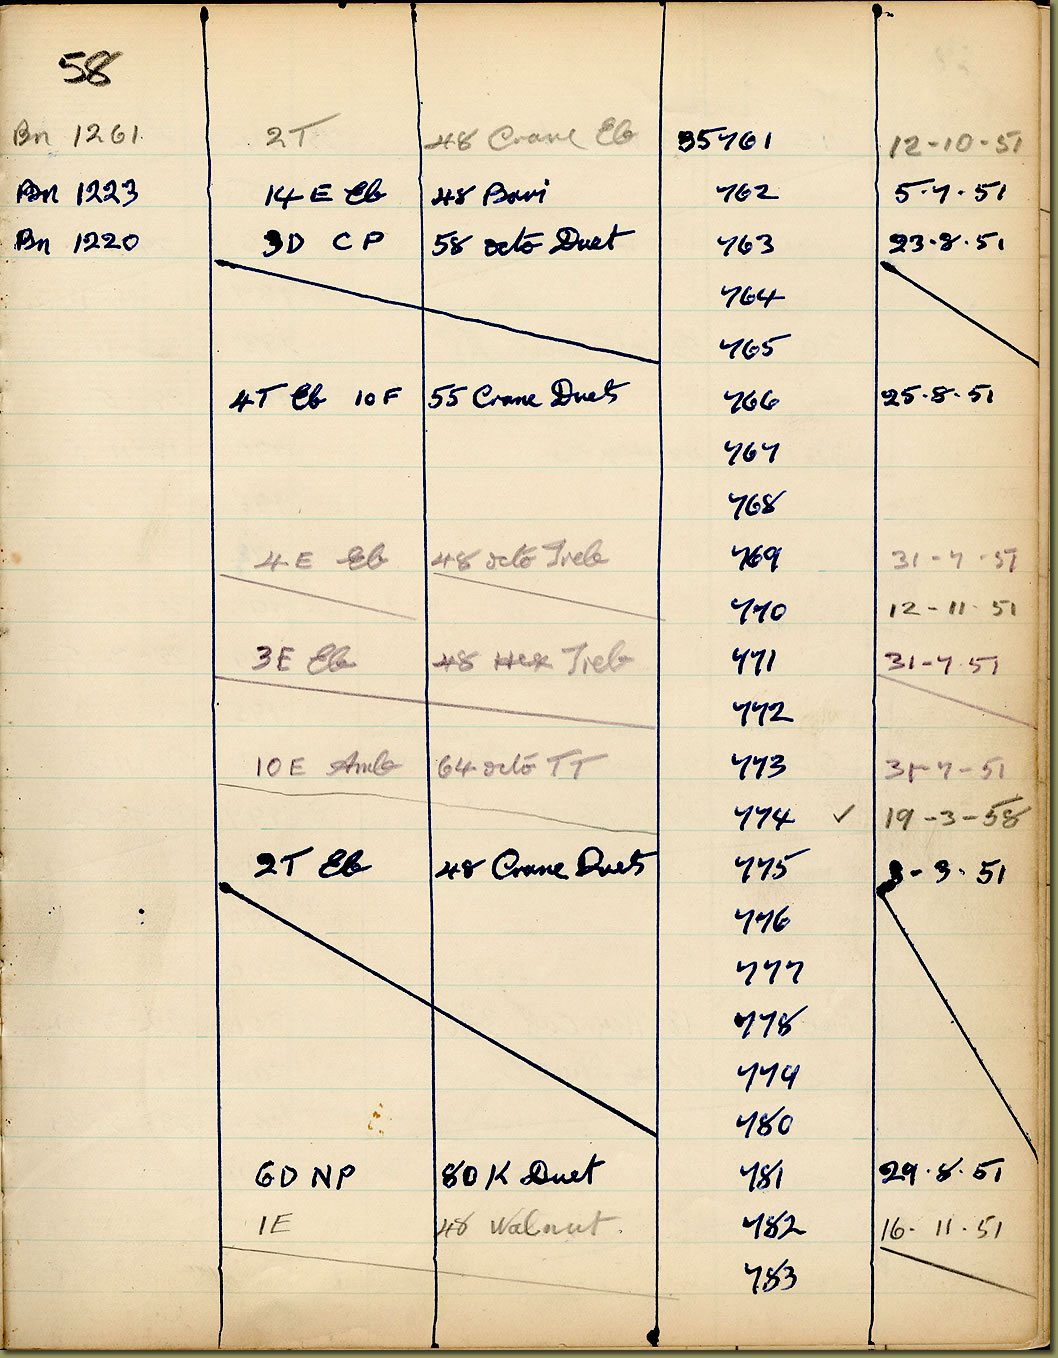 58
Bn 1261 2T 48 Crane Eb 35761 12-10-51
Bn 1223 14 E Eb 48 Bari 762 5.7.51
Bn 1220 3D C P 58 octo Duet 763 23.8.51
764
765
4T Eb 10 F 55 Crane Duet 766 25.8.51
767
768
4 E Eb 48 octo Treb 769 31-7-51
770 12-11-51
3E Eb 48 Hex Treb 771 31-7.51
772
10 E Amb 64 octo TT 773 31-7-51
774 ✓ 19-3-58
2T Eb 48 Crane Duet 775 -9.51
776
777
778
779
780
6D NP 80 K Duet 781 29.8.51
1E 48 Walnut. 782 16-11.51
783